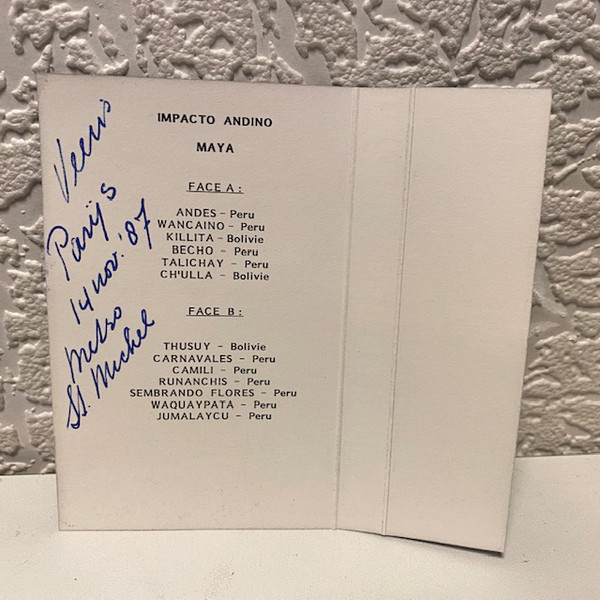 IMPACTO ANDINO
MAYA
FACE A :
ANDES - Peru
WANCAINO - Peru
KILLITA - Bolivie
BECHO - Peru
TALICHAY - Peru
CH'ULLA - Bolivie
FACE B :
THUSUY - Bolivie
CARNAVALES - Peru
CAMILI - Peru
RUNANCHIS - Peru
SEMBRANDO FLORES - Peru
WAQUAYPATA - Peru
JUMALAYCU - Peru
Parijs
14 nov. '87
Metro
St. Michel